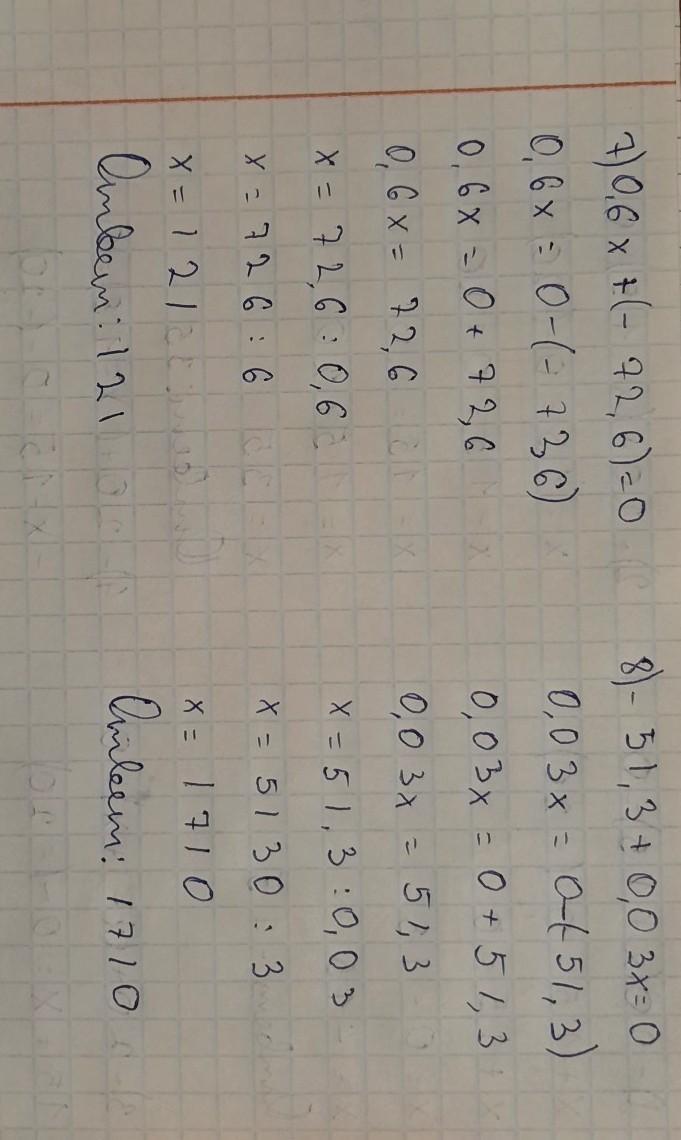 7) 0,6x + (- 72,6) = 0
0,6x = 0 - (- 72,6)
0,6x = 0 + 72,6
0,6x = 72,6
x = 72,6 : 0,6
x = 726 : 6
x = 121
Ответ: 121
8) - 51,3 + 0,03x = 0
0,03x = 0 - (- 51,3)
0,03x = 0 + 51,3
0,03x = 51,3
x = 51,3 : 0,03
x = 5130 : 3
x = 1710
Ответ: 1710